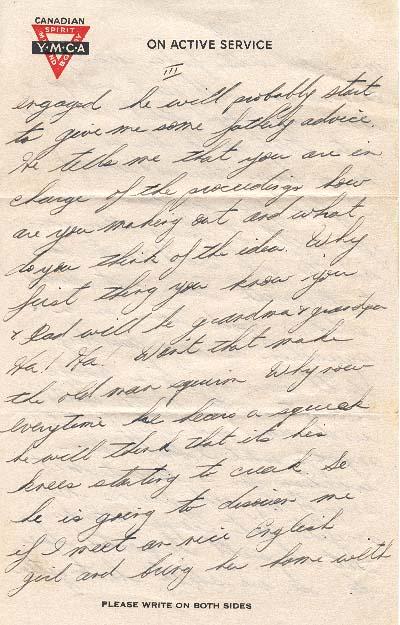 CANADIAN
SPIRIT
Y·M·C·A
MIND BODY
ON ACTIVE SERVICE
III
engaged he will probably start
to give me some fatherly advice.
He tells me that you are in
charge of the proceedings how
are you making out and what
do you think of the idea. Why
first thing you know you
& Dad will be grandma & grandpa
Ha! Ha! Won't that make
the old man squirm Why now
everytime he hears a squeak
he will think that its his
knees starting to creak So
he is going to disown me
if I meet an nice English
girl and bring her home with
PLEASE WRITE ON BOTH SIDES